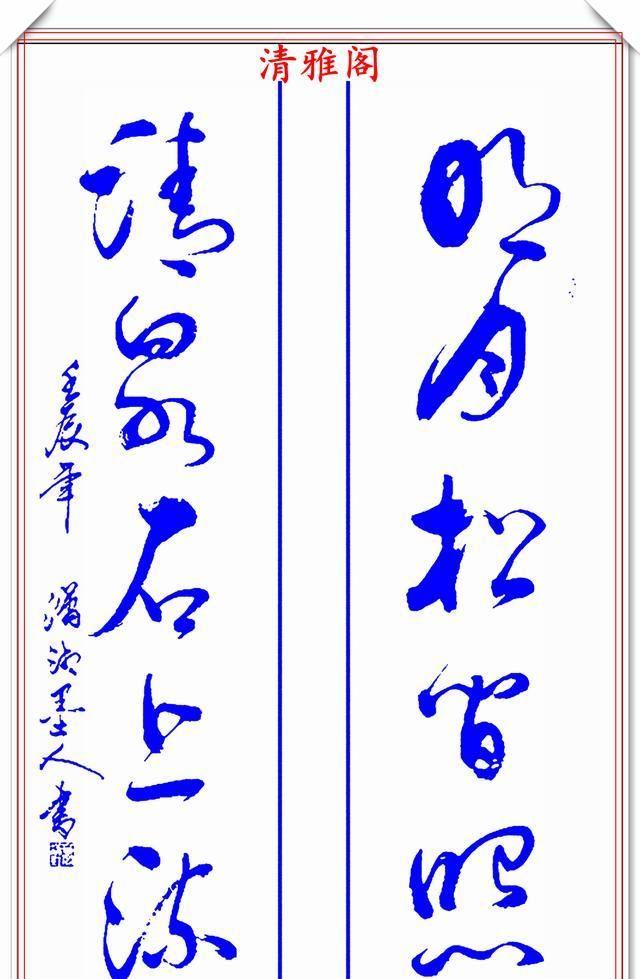 清雅阁
明月松间照
清泉石上流
壬辰年 潇湘墨人书